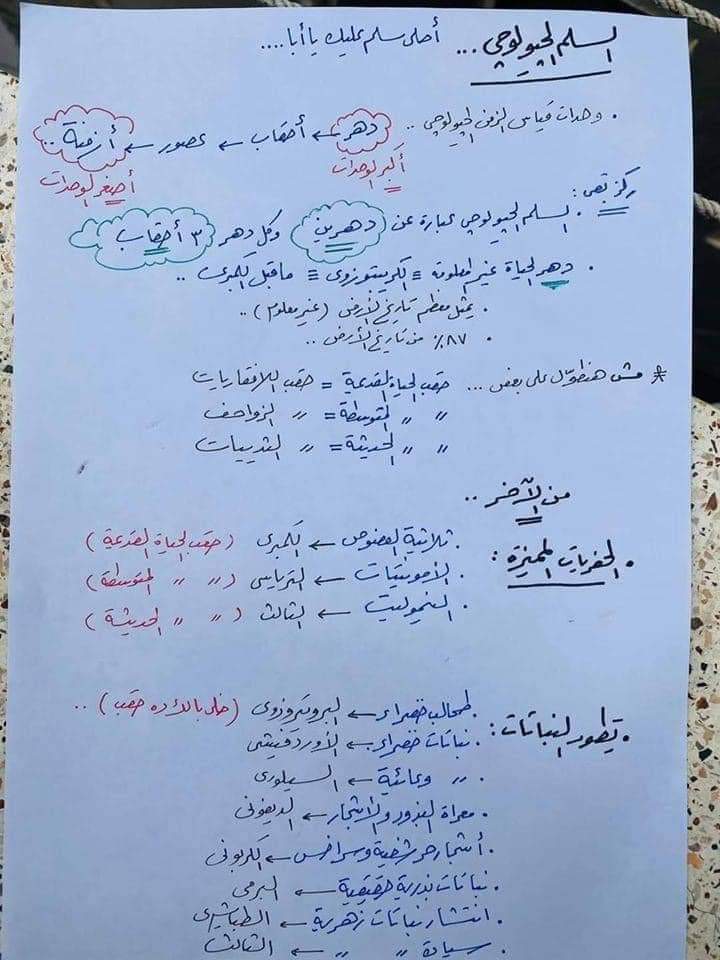 السلم الجيولوجي ... أصلى سلم عليك يا أبا ....
• وحدات قياس الزمن الجيولوجي .. دهر ← أحقاب ← عصور ← أزمنة ..
أكبر الوحدات أصغر الوحدات
ركز بقى :
• السلم الجيولوجي عبارة عن دهرين وكل دهر ٣ أحقاب
• دهر الحياة غير المعلومة ≡ الكريبتوزوى ≡ ما قبل الكمبرى ..
• يمثل معظم تاريخ الأرض (غير معلوم) ..
• ٨٧٪ من تاريخ الأرض ..
* مش هنطوّل على بعض ... حقب الحياة القديمة = حقب اللافقاريات
〃 〃 المتوسطة = 〃 الزواحف
〃 〃 الحديثة = 〃 الثدييات
من الآخر ..
• الحفريات المميزة :
• ثلاثية الفصوص ← الكمبرى (حقب الحياة القديمة)
• الأمونيتات ← الترياسى (〃 〃 المتوسطة)
• النيموليت ← الثالث (〃 〃 الحديثة)
• تطور النباتات :
• طحالب خضراء ← البروتيروزوى (خلى بالك ده حقب) ..
• نباتات خضراء ← الأوردفيشى
• 〃 وعائية ← السيلورى
• معراة البذور والأشجار ← الديفونى
• أشجار حرشفية وسراخس ← الكربونى
• نباتات بذرية حقيقية ← البرمى
• انتشار نباتات زهرية ← الطباشيرى
• سيادة 〃 〃 ← الثالث